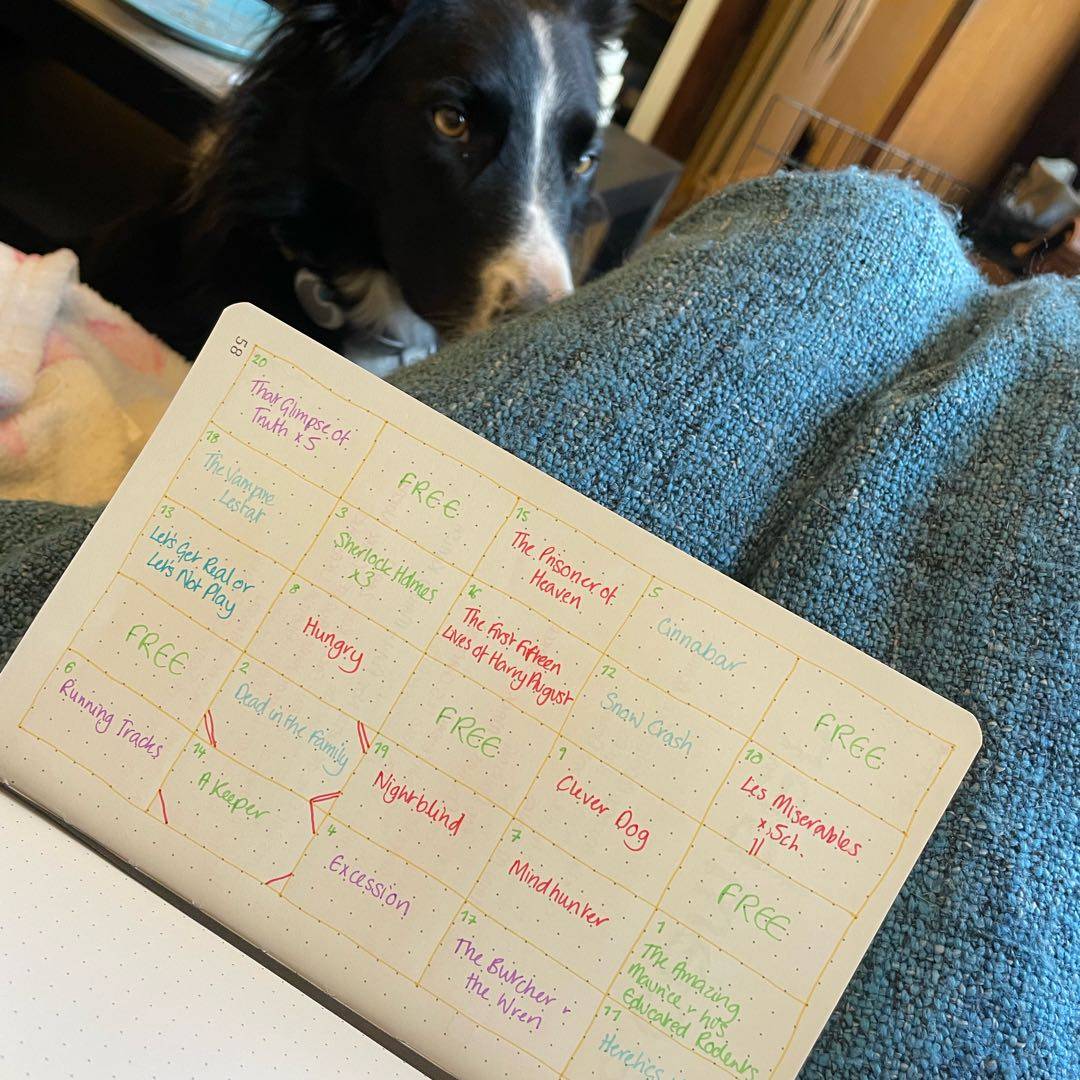 58
20
That Glimpse of
Truth x 5
FREE
15
The Prisoner of
Heaven
5
Cinnabar
FREE
18
The Vampire
Lestat
3
Sherlock Holmes
x3
16
The First Fifteen
Lives of Harry August
12
Snow Crash
10
Les Miserables
x 5ch.
13
Let's Get Real or
Let's Not Play
8
Hungry
FREE
9
Clever Dog
FREE
FREE
2
Dead in the Family
19
Nightblind
7
Mindhunter
1
The Amazing
Maurice + his
Educated Rodents
6
Running Tracks
14
A Keeper
4
Excession
17
The Butcher +
the Wren
11
Heretics